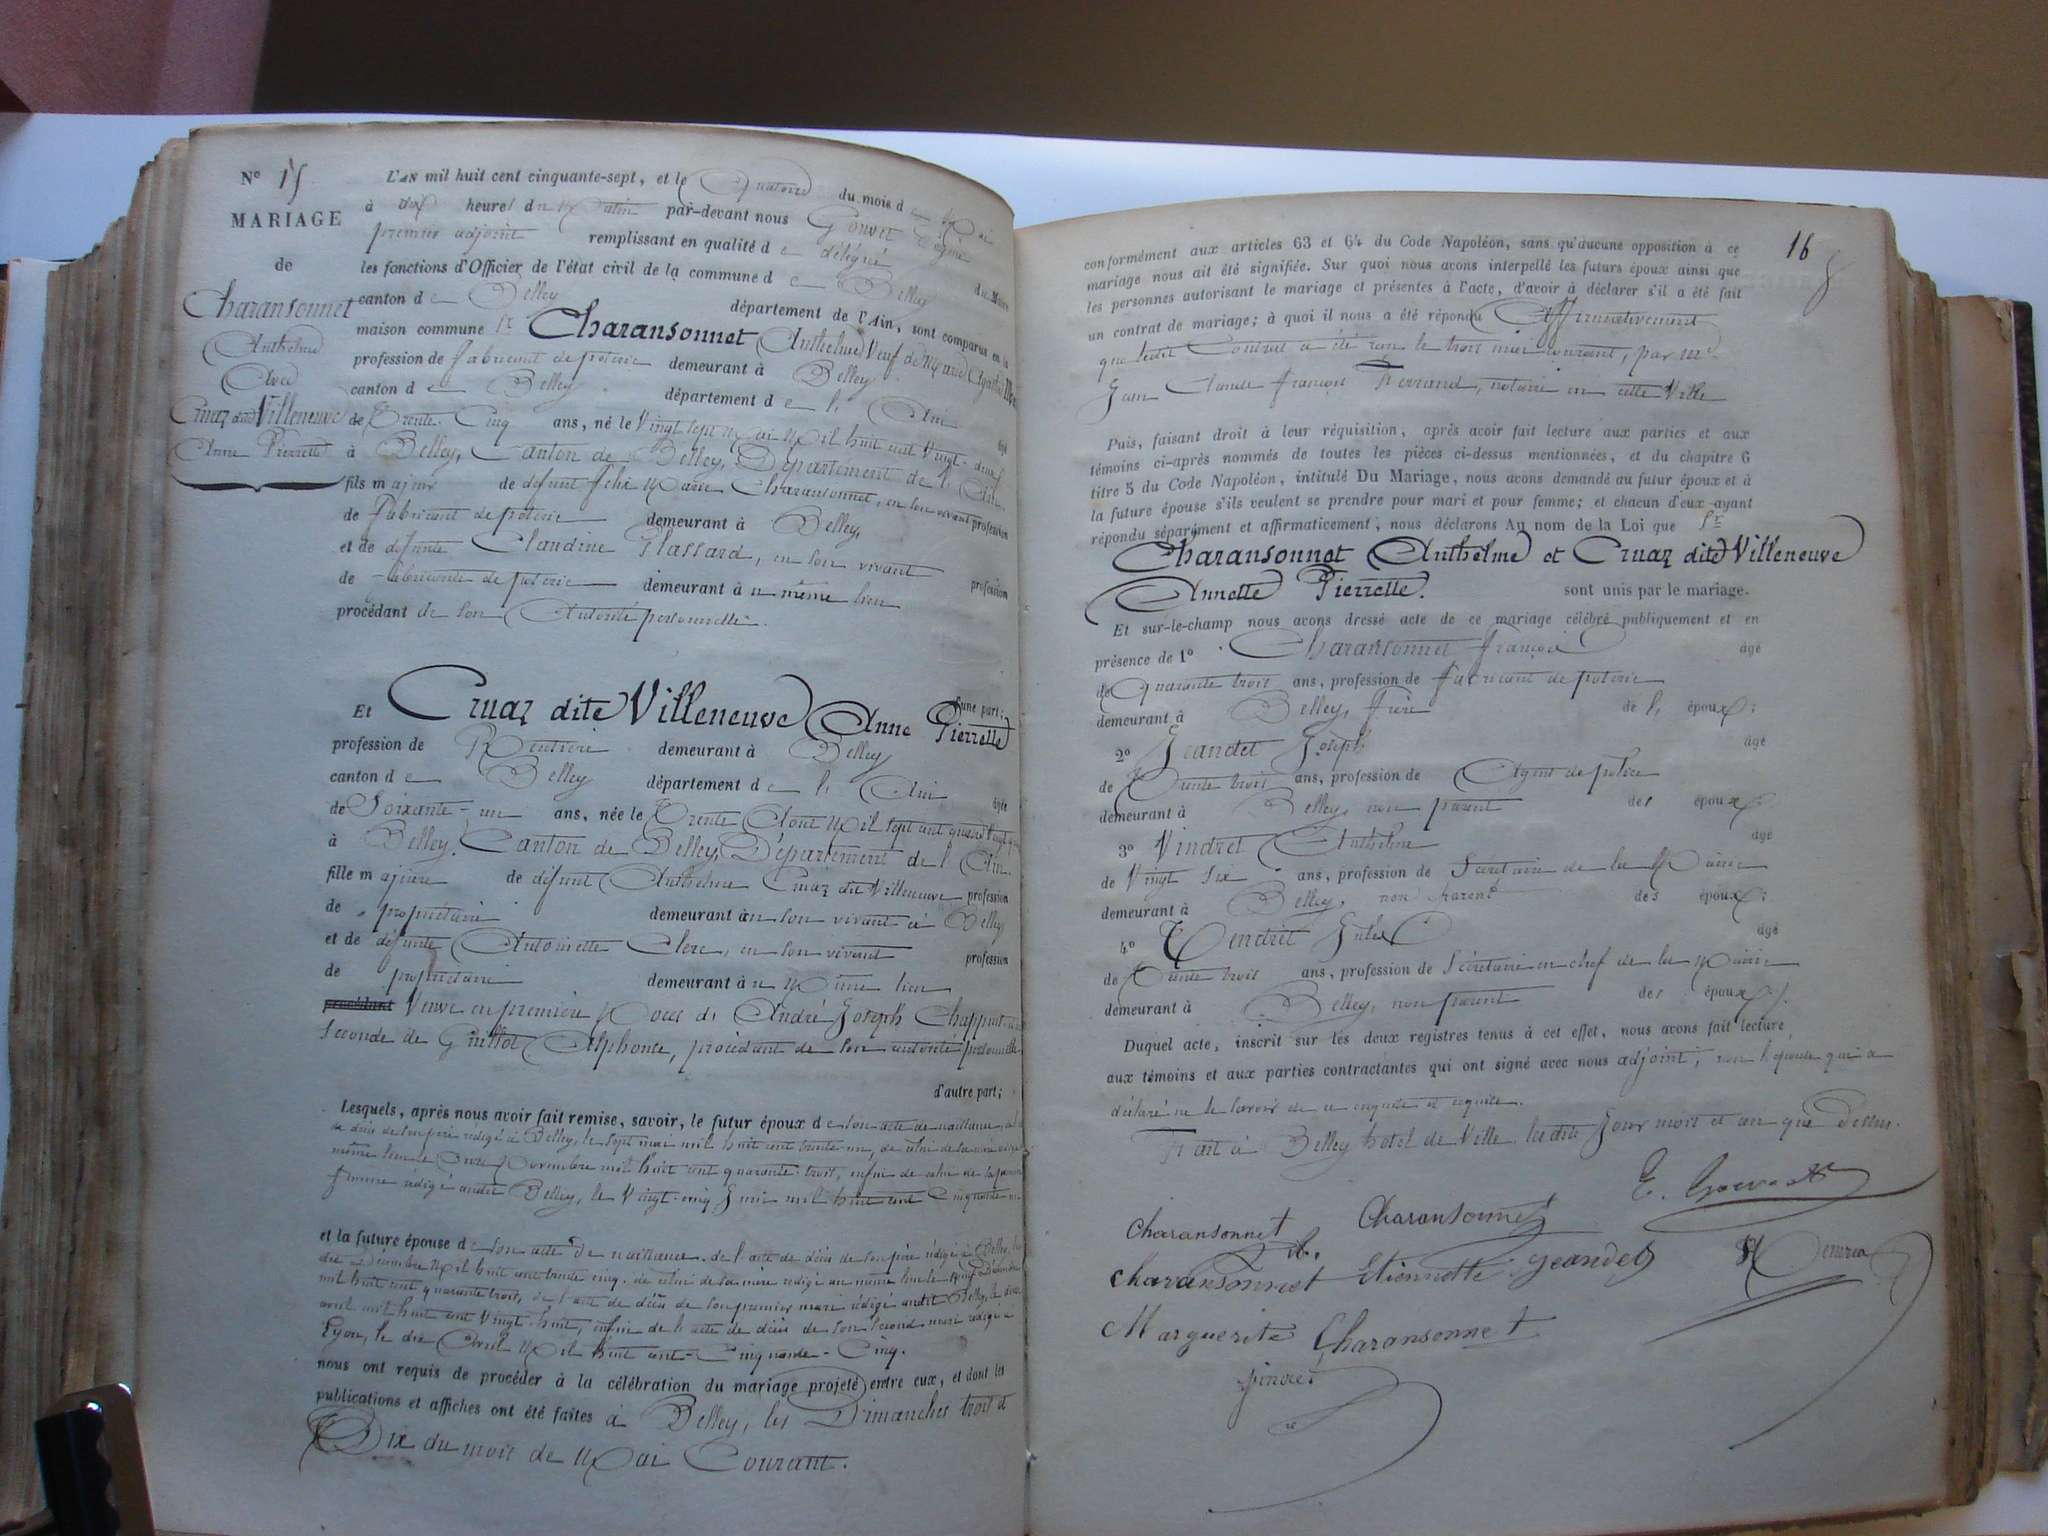 N° 15
MARIAGE
de
Charansonnet
Anthelme
Avec
Cruaz dite Villeneuve
Anne Pierrette
L'AN mil huit cent cinquante-sept, et le Quatorze du mois de Mai
à dix heures du Matin par-devant nous Gouvet Eugène
premier adjoint remplissant en qualité de délégué du Maire
les fonctions d'Officier de l'état civil de la commune de Belley
canton de Belley département de l'Ain, sont comparus en la
maison commune Sr Charansonnet Anthelme Veuf de Marie
profession de fabricant de poterie demeurant à Belley
canton de Belley département de l'Ain âgé
de Trente-Cinq ans, né le Vingt sept Mai Mil huit cent Vingt-deux
à Belley, Canton de Belley, Département de l'Ain.
fils majeur de défunt Félix Marie Charansonnet, en son vivant profession
de fabricant de poterie demeurant à Belley,
et de défunte Claudine Plassard, en son vivant profession
de fabricante de poterie demeurant à u même lieu
procédant de son Autorité personnelle.
d'une part;
Et Cruaz dite Villeneuve Anne Pierrette
profession de Rentière demeurant à Belley
canton de Belley département de l'Ain âgée
de Soixante-un ans, née le Trente Août Mil sept cent quatre vingt
à Belley, Canton de Belley, Département de l'Ain.
fille majeure de défunt Anthelme Cruaz dit Villeneuve profession
de propriétaire demeurant en son vivant à Belley
et de défunte Antoinette Clerc, en son vivant profession
de propriétaire demeurant à u Même lieu
procédant Veuve en première Noces de André Joseph Chappuis
seconde de Guillot Alphonse, procédant de son autorité personnelle
d'autre part;
Lesquels, après nous avoir fait remise, savoir, le futur époux de son acte de naissance,
de décès de son père rédigé à Belley, le sept mai mil huit cent trente un, de celui de sa mère
même lieu le Onze Novembre mil huit cent quarante-trois, enfin de celui de sa
femme rédigé audit Belley, le Vingt-cinq Juin mil huit cent Cinquante
et la future épouse de son acte de naissance. de l'acte de décès de son père rédigé à Belley,
dix Décembre Mil huit cent trente cinq. de celui de sa mère rédigé au même lieu le Neuf Décembre
mil huit cent quarante trois, de l'acte de décès de son premier mari rédigé audit Belley, le
août mil huit cent Vingt-huit, enfin de l'acte de décès de son second mari rédigé à
Lyon, le dix Avril Mil huit cent-Cinquante-Cinq.
nous ont requis de procéder à la célébration du mariage projeté entre eux, et dont les
publications et affiches ont été faites à Belley, les Dimanches trois et
Dix du mois de Mai Courant.
16
conformément aux articles 63 et 64 du Code Napoléon, sans qu'aucune opposition à ce
mariage nous ait été signifiée. Sur quoi nous avons interpellé les futurs époux ainsi que
les personnes autorisant le mariage et présentes à l'acte, d'avoir à déclarer s'il a été fait
un contrat de mariage; à quoi il nous a été répondu Affirmativement
que ledit Contrat a été reçu le trois mai courant, par Me
Jean Claude François Ferrand, notaire en cette Ville
Puis, faisant droit à leur réquisition, après avoir fait lecture aux parties et aux
témoins ci-après nommés de toutes les pièces ci-dessus mentionnées, et du chapitre 6
titre 5 du Code Napoléon, intitulé Du Mariage, nous avons demandé au futur époux et à
la future épouse s'ils veulent se prendre pour mari et pour femme; et chacun d'eux ayant
répondu séparément et affirmativement, nous déclarons Au nom de la Loi que Sr
Charansonnet Anthelme et Cruaz dite Villeneuve
Annette Pierrette. sont unis par le mariage.
Et sur-le-champ nous avons dressé acte de ce mariage célébré publiquement et en
présence de 1° Charansonnet François âgé
de Quarante trois ans, profession de fabricant de poterie
demeurant à Belley, frère de l' époux;
2° Jeandet Joseph âgé
de Trente trois ans, profession de Agent de police
demeurant à Belley, non parent des époux;
3° Vindret Anthelme âgé
de Vingt six ans, profession de Secrétaire de la Mairie
demeurant à Belley, non parent des époux;
4° Tendret Jules âgé
de Trente trois ans, profession de Secrétaire en chef de la Mairie
demeurant à Belley, non parent des époux.
Duquel acte, inscrit sur les deux registres tenus à cet effet, nous avons fait lecture
aux témoins et aux parties contractantes qui ont signé avec nous adjoint, non l'épouse qui a
déclaré ne le savoir de ce enquise et requise.
Fait à Belley hôtel de Ville, ledit Jour mois et an que Dessus.
E. Gouvet
Charansonnet Charansonnet
charansonnet Etiennette Jeandet
Marguerite Charansonnet